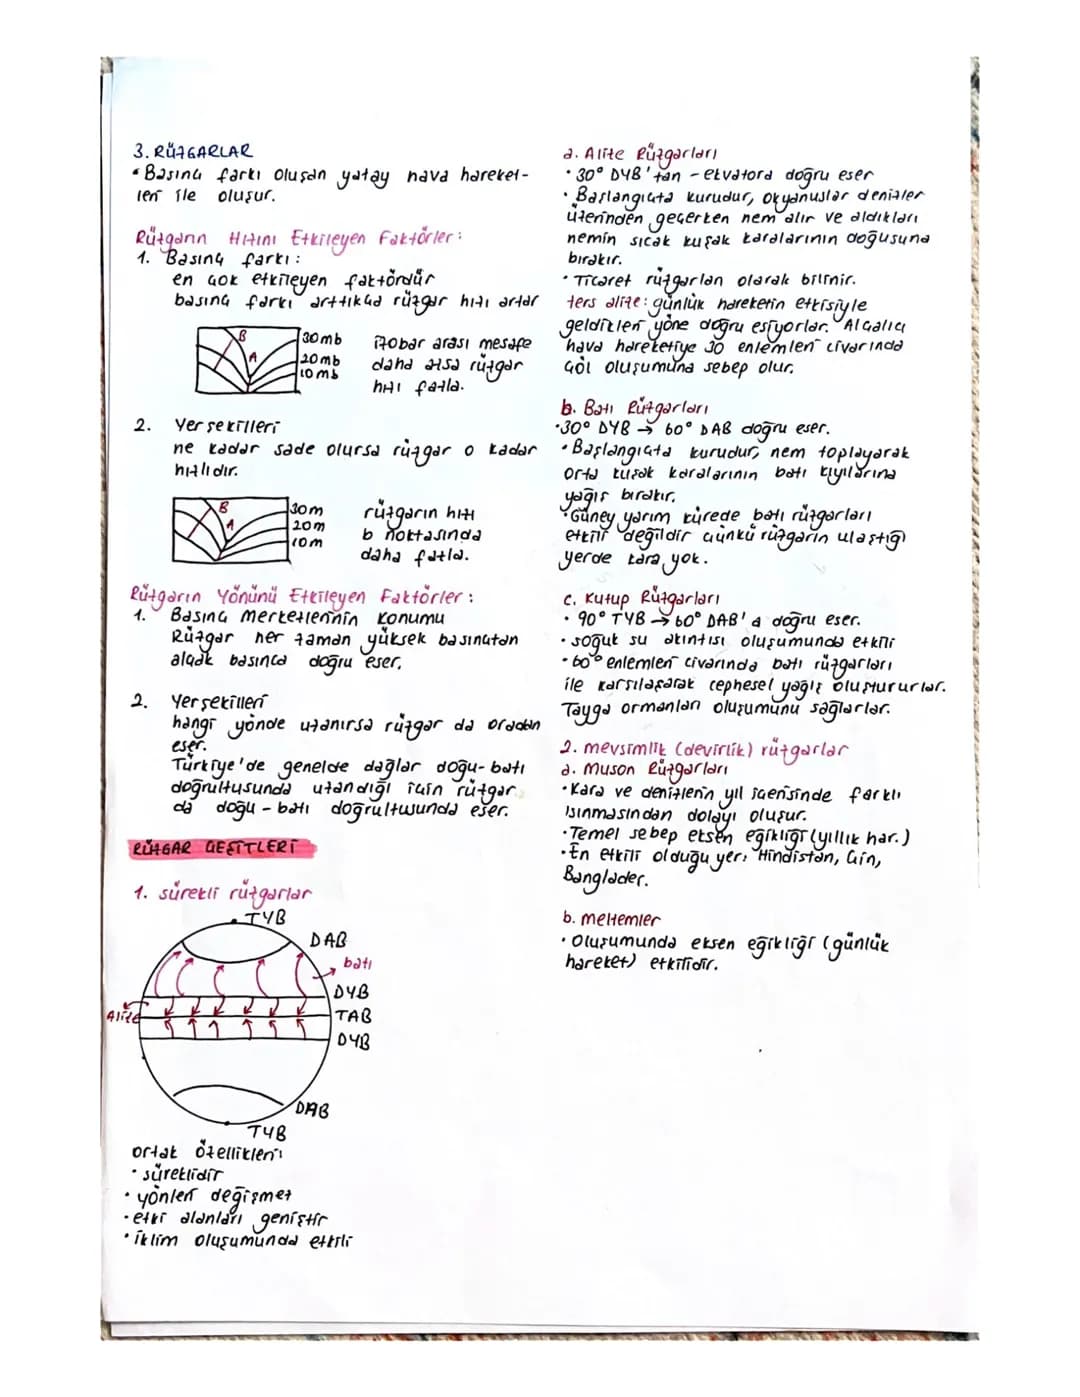 3. RÜZGARLAR
• Basınç farkı oluşan yatay hava hareket-
leri ile oluşur.
Rüzgarın Hızını Etkileyen Faktörler:
1. Basınç farkı:
en çok etkileyen faktördür
basınç farkı arttıkça rüzgar hızı artar
B
A
30mb
20mb
10mb
izobar arası mesafe
daha azsa rüzgar
hızı fazla.
2. Yer şekilleri
ne kadar sade olursa rüzgar o kadar
hızlıdır.
B
A
30m
20m
10m
rüzgarın hızı
b noktasında
daha fazla.
Rüzgarın Yönünü Etkileyen Faktörler:
1. Basınç Merkezlerinin konumu
Rüzgar her zaman yüksek basınçtan
alçak basınca doğru eser.
2. Yer şekilleri
hangi yönde uzanırsa rüzgar da oradan
eser.
Türkiye'de genelde dağlar doğu-batı
doğrultusunda uzandığı için rüzgar
da doğu-batı doğrultusunda eser.
RÜZGAR ÇEŞİTLERİ
1. sürekli rüzgarlar
TYB
DAB
batı
DYB
Alize
TAB
DYB
DAB
TYB
ortak özellikleri
• süreklidir
• yönleri değişmez
• etki alanları geniştir
• iklim oluşumunda etkili
a. Alize Rüzgarları
• 30° DYB'tan - ekvatora doğru eser
• Başlangıçta kurudur, okyanuslar denizler
üzerinden geçerken nem alır ve aldıkları
nemin sıcak kuşak karalarının doğusuna
bırakır.
• Ticaret rüzgarları olarak bilinir.
ters alize: günlük hareketin etkisiyle
geldikleri yöne doğru esiyorlar. Alçalıcı
hava hareketiye 30 enlemleri civarında
çöl oluşumuna sebep olur.
b. Batı Rüzgarları
• 30° DYB → 60° DAB doğru eser.
• Başlangıçta kurudur, nem toplayarak
orta kuşak karalarının batı kıyılarına
yağış bırakır.
• Güney yarım kürede batı rüzgarları
etkili değildir çünkü rüzgarın ulaştığı
yerde kara yok.
c. Kutup Rüzgarları
• 90° TYB → 60° DAB'a doğru eser.
• soğuk su akıntısı oluşumunda etkili
• 60° enlemleri civarında batı rüzgarları
ile karşılaşarak cephesel yağış oluştururlar.
Tayga ormanları oluşumunu sağlarlar.
2. mevsimlik (devirlik) rüzgarlar
a. Muson Rüzgarları
• Kara ve denizlerin yıl içerisinde farklı
ısınmasından dolayı oluşur.
• Temel sebep eksen eğikliği (yıllık har.)
• En etkili olduğu yer: Hindistan, Çin,
Banglader.
b. meltemler
• Oluşumunda eksen eğikliği (günlük
hareket) etkilidir.